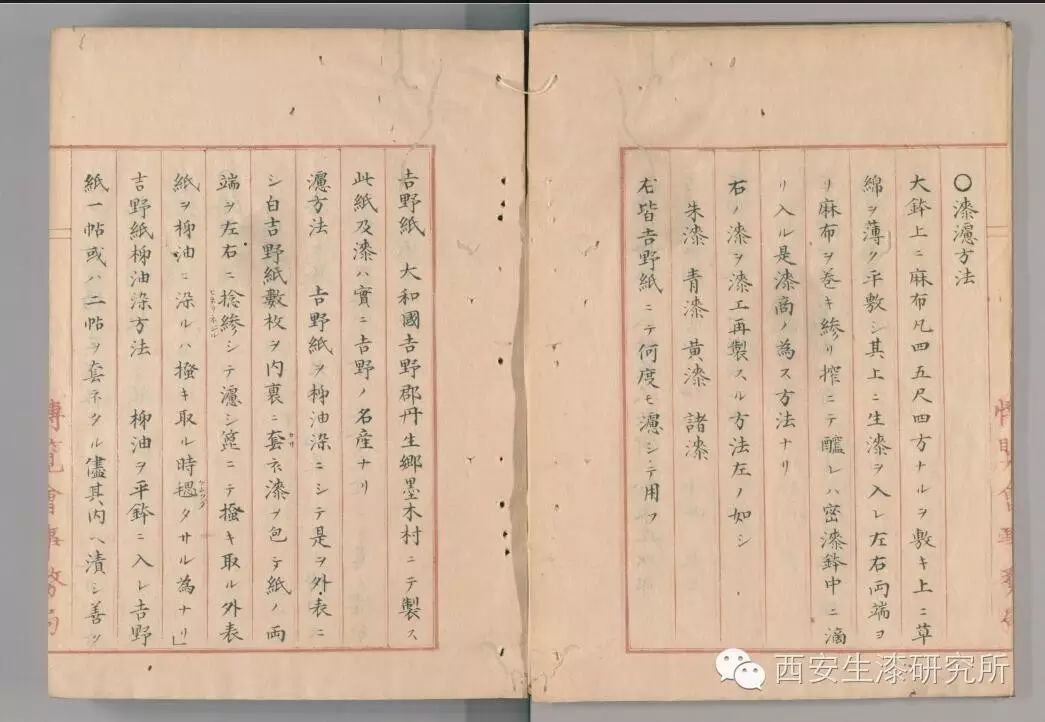 〇漆濾方法
大鉢上ニ麻布凡四五尺四方ナルヲ敷キ上ニ草
綿ヲ薄ク平敷シ其上ニ生漆ヲ入レ左右両端ヲ
リ麻布ヲ巻キ縿リ搾ニテ釃レハ密漆鉢中ニ滴
リ入ル是漆商ノ為ス方法ナリ
右ノ漆ヲ漆工再製スル方法左ノ如シ
朱漆 青漆 黄漆 諸漆
右皆𠮷野紙ニテ何度モ濾シテ用フ
𠮷野紙 大和國𠮷野郡丹生郷墨木村ニテ製ス
此紙及漆ハ實ニ𠮷野ノ名産ナリ
濾方法 𠮷野紙ヲ桞油染ニシテ是ヲ外表ニ
シ白𠮷野紙數枚ヲ内裏ニ套ネ漆ヲ包テ紙ノ両
端ヲ左右ニ捻縿シテ濾シ篦ニテ搔キ取ル外表
紙ヲ桞油ニ染ルハ搔キ取ル時毸タサル為ナリ」
𠮷野紙桞油染方法 桞油ヲ平鉢ニ入レ𠮷野
紙一帖或ハ二帖ヲ套ネタル儘其内ヘ漬シ善ク
博覧會事務局
西安生漆研究所